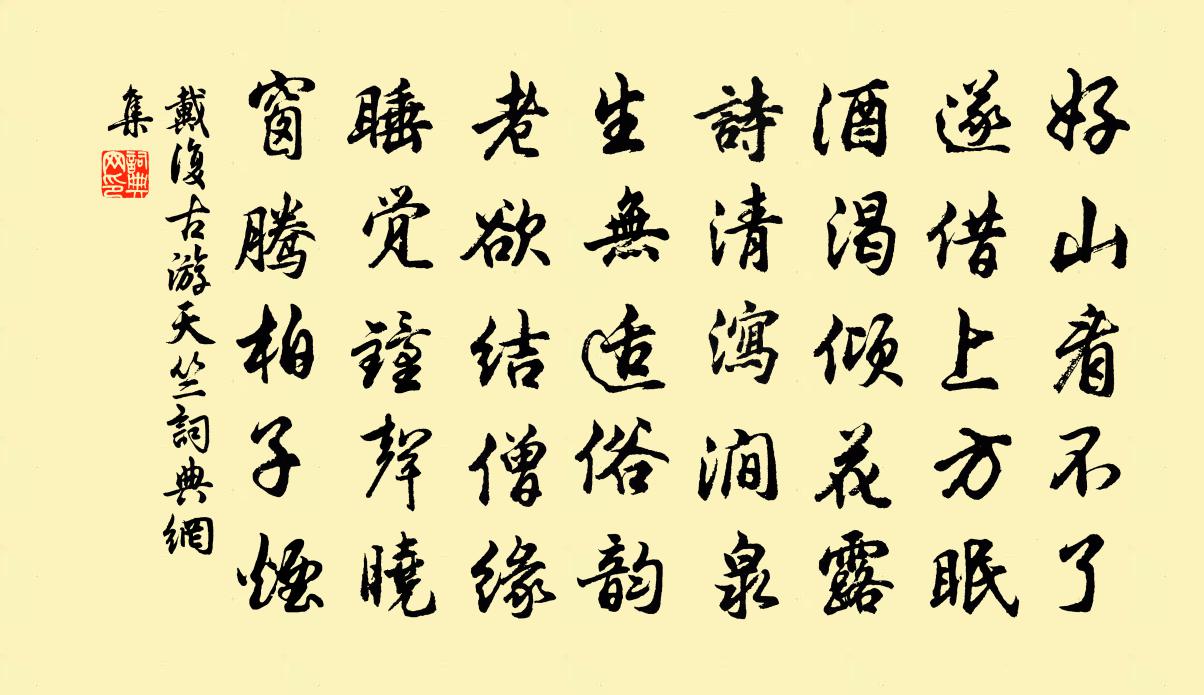 好山看不了
遂借上方眠
酒渴倾花露
詩清瀉澗泉
生無適俗韵
老欲结僧缘
睡觉鐘聲曉
窗騰柏子煙
戴復古游天竺詞典網
集
詞典
网印